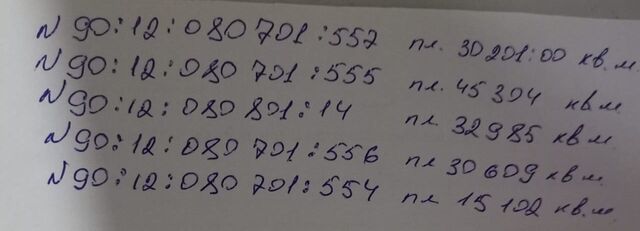 N 90:12:080701:557 пл. 30201:00 кв.м
N 90:12:080701:555 пл. 45304 кв м
N 90:12:080801:14 пл 32985 кв м.
N 90:12:080701:556 пл 30609 кв м.
N 90:12:080701:554 пл 15102 кв.м.